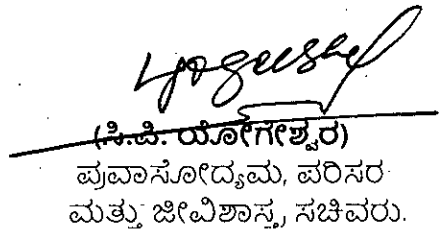 (ಸಿ.ಪಿ. ಯೋಗೇಶ್ವರ)
ಪ್ರವಾಸೋದ್ಯಮ, ಪರಿಸರ
ಮತ್ತು ಜೀವಿಶಾಸ್ತ್ರ ಸಚಿವರು.